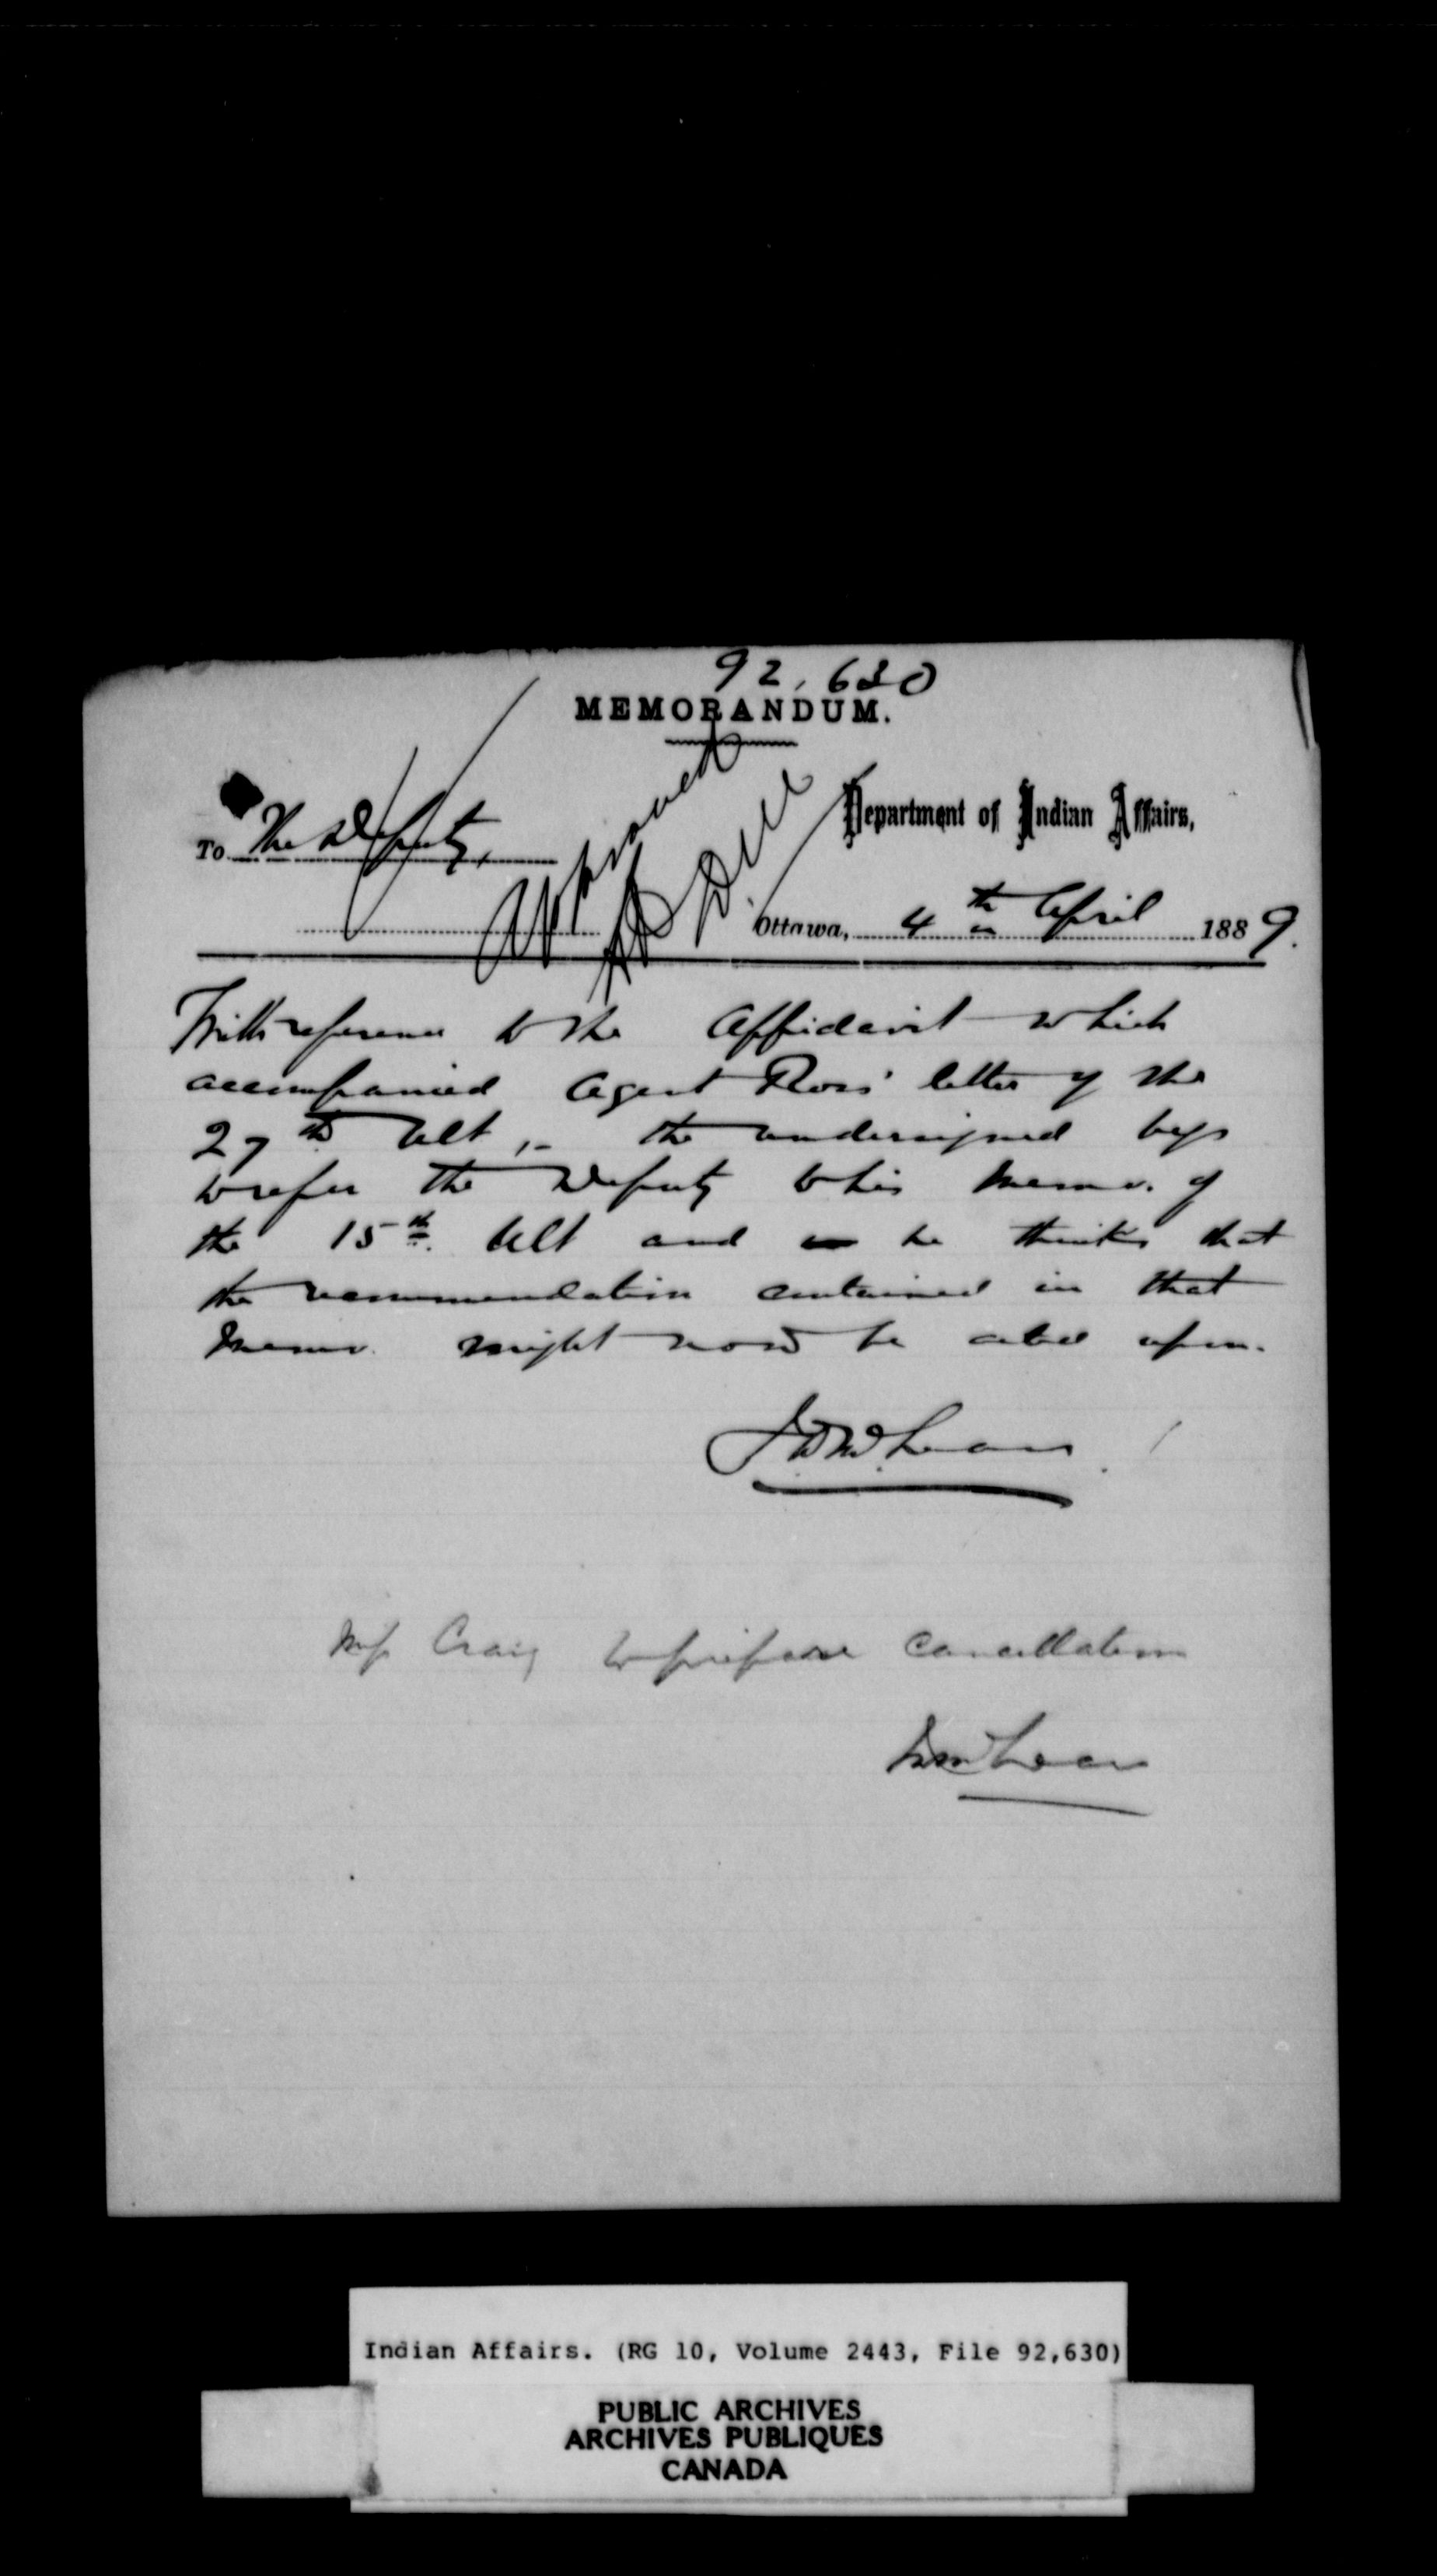 92,630
MEMORANDUM.
Department of Indian Affairs,
To The Deputy,
Approved
Ottawa, 4th April 1889.
With reference to the Affidavit which
accompanied Agent Ross' letter of the
27th Ult, - the undersigned begs
to refer the Deputy to his memo. of
the 15th. Ult and he thinks that
the recommendation contained in that
memo. might now be acted upon.
J.D. McLean
Craig to prepare Cancellation
McLean
Indian Affairs. (RG 10, Volume 2443, File 92,630)
PUBLIC ARCHIVES
ARCHIVES PUBLIQUES
CANADA